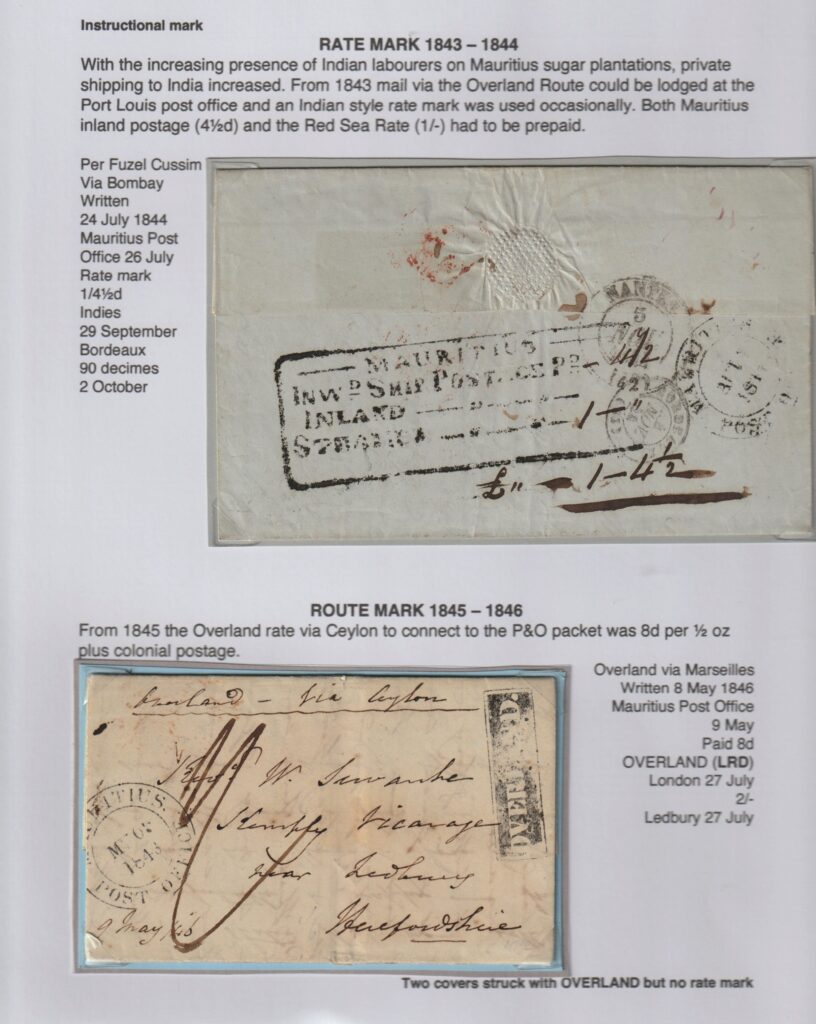 Instructional mark
RATE MARK 1843 – 1844
With the increasing presence of Indian labourers on Mauritius sugar plantations, private
shipping to India increased. From 1843 mail via the Overland Route could be lodged at the
Port Louis post office and an Indian style rate mark was used occasionally. Both Mauritius
inland postage (4½d) and the Red Sea Rate (1/-) had to be prepaid.
Per Fuzel Cussim
Via Bombay
Written
24 July 1844
Mauritius Post
Office 26 July
Rate mark
1/4½d
Indies
29 September
Bordeaux
90 decimes
2 October
MAURITIUS
INWD SHIP POSTAGE PD
INLAND
STEAMER
4½
1-"
£" - 1-4½
ROUTE MARK 1845 – 1846
From 1845 the Overland rate via Ceylon to connect to the P&O packet was 8d per ½ oz
plus colonial postage.
Overland via Marseilles
Written 8 May 1846
Mauritius Post Office
9 May
Paid 8d
OVERLAND (LRD)
London 27 July
2/-
Ledbury 27 July
Overland - Via Ceylon
OVERLAND.
W.
Vicarage
near Ledbury
Herefordshire
MAURITIUS POST OFFICE
9 May /46
Two covers struck with OVERLAND but no rate mark